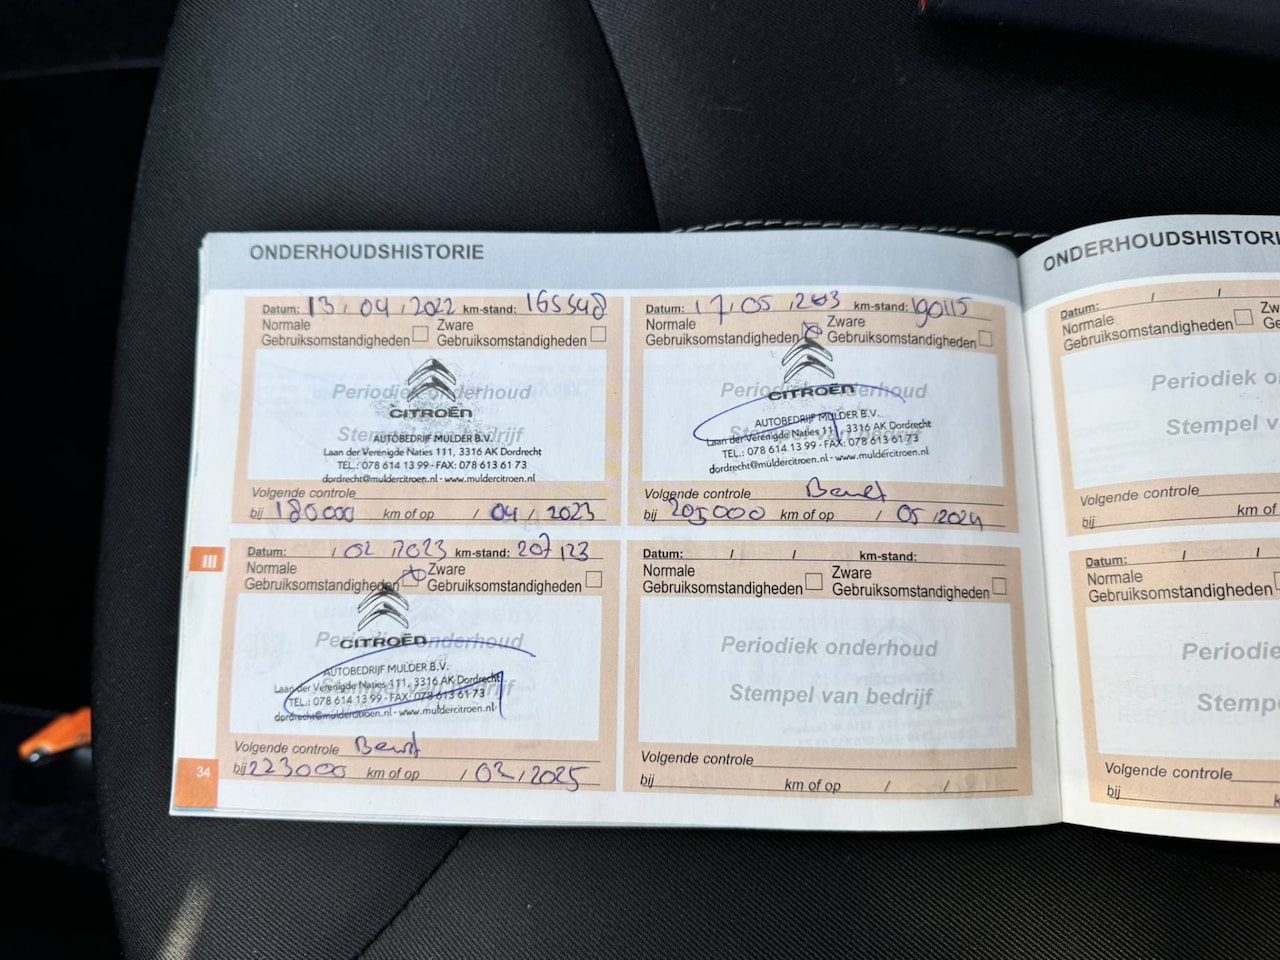 ONDERHOUDSHISTORIE
Datum: 13 / 04 / 2022 km-stand: 165548
Normale Gebruiksomstandigheden
Zware Gebruiksomstandigheden
Periodiek onderhoud
CITROËN
Stempel van bedrijf
AUTOBEDRIJF MULDER B.V.
Laan der Verenigde Naties 111, 3316 AK Dordrecht
TEL.: 078 614 13 99 - FAX: 078 613 61 73
dordrecht@muldercitroen.nl - www.muldercitroen.nl
Volgende controle
bij 180000 km of op / 04 / 2023
Datum: 17 / 05 / 2023 km-stand: 190115
Normale Gebruiksomstandigheden
Zware Gebruiksomstandigheden
Periodiek onderhoud
CITROËN
Stempel van bedrijf
AUTOBEDRIJF MULDER B.V.
Laan der Verenigde Naties 111, 3316 AK Dordrecht
TEL.: 078 614 13 99 - FAX: 078 613 61 73
dordrecht@muldercitroen.nl - www.muldercitroen.nl
Volgende controle
bij 205000 km of op / 05 / 2024
III
Datum: / 02 / 2023 km-stand: 207123
Normale Gebruiksomstandigheden
Zware Gebruiksomstandigheden
Periodiek onderhoud
CITROËN
Stempel van bedrijf
AUTOBEDRIJF MULDER B.V.
Laan der Verenigde Naties 111, 3316 AK Dordrecht
TEL.: 078 614 13 99 - FAX: 078 613 61 73
dordrecht@muldercitroen.nl - www.muldercitroen.nl
Volgende controle
bij 223000 km of op / 02 / 2025
Datum: / / km-stand:
Normale Gebruiksomstandigheden
Zware Gebruiksomstandigheden
Periodiek onderhoud
Stempel van bedrijf
Volgende controle
bij km of op / /
34
ONDERHOUDSHISTORI
Datum: / /
Normale Gebruiksomstandigheden
Z
Periodiek o
Stempel v
Volgende controle
bij km of
Datum: / /
Normale Gebruiksomstandigheden
Periodie
Stemp
Volgende controle
bij